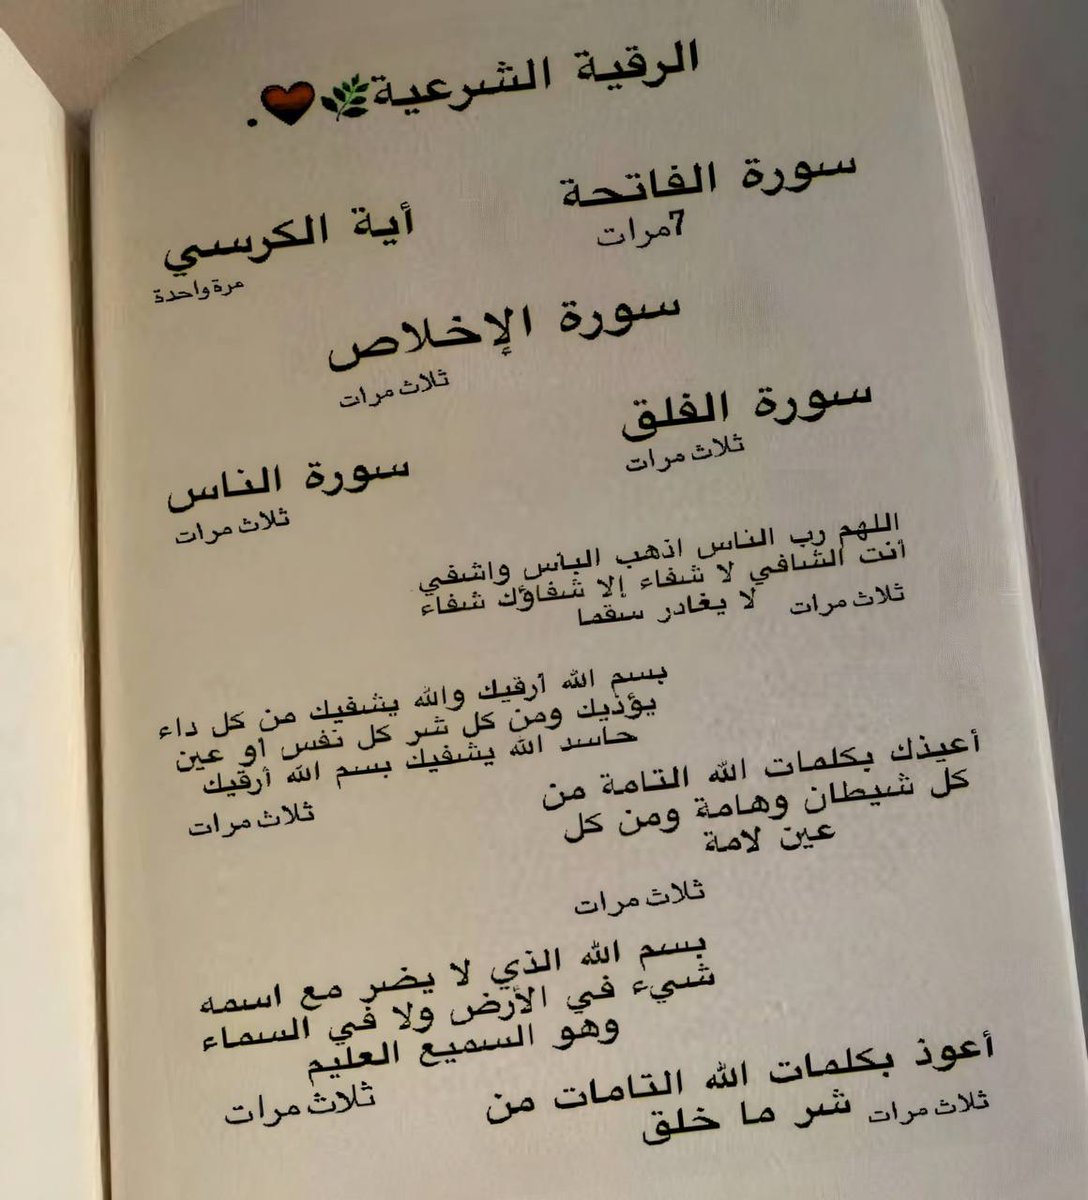 الرقية الشرعية🌿❤️.
سورة الفاتحة
7مرات
أية الكرسي
مرة واحدة
سورة الإخلاص
ثلاث مرات
سورة الفلق
ثلاث مرات
سورة الناس
ثلاث مرات
اللهم رب الناس اذهب البأس واشفي
أنت الشافي لا شفاء إلا شفاؤك شفاء
لا يغادر سقما
ثلاث مرات
بسم الله أرقيك والله يشفيك من كل داء
يؤذيك ومن كل شر كل نفس أو عين
حاسد الله يشفيك بسم الله أرقيك
ثلاث مرات
أعيذك بكلمات الله التامة من
كل شيطان وهامة ومن كل
عين لامة
ثلاث مرات
بسم الله الذي لا يضر مع اسمه
شيء في الأرض ولا في السماء
وهو السميع العليم
ثلاث مرات
أعوذ بكلمات الله التامات من
شر ما خلق
ثلاث مرات